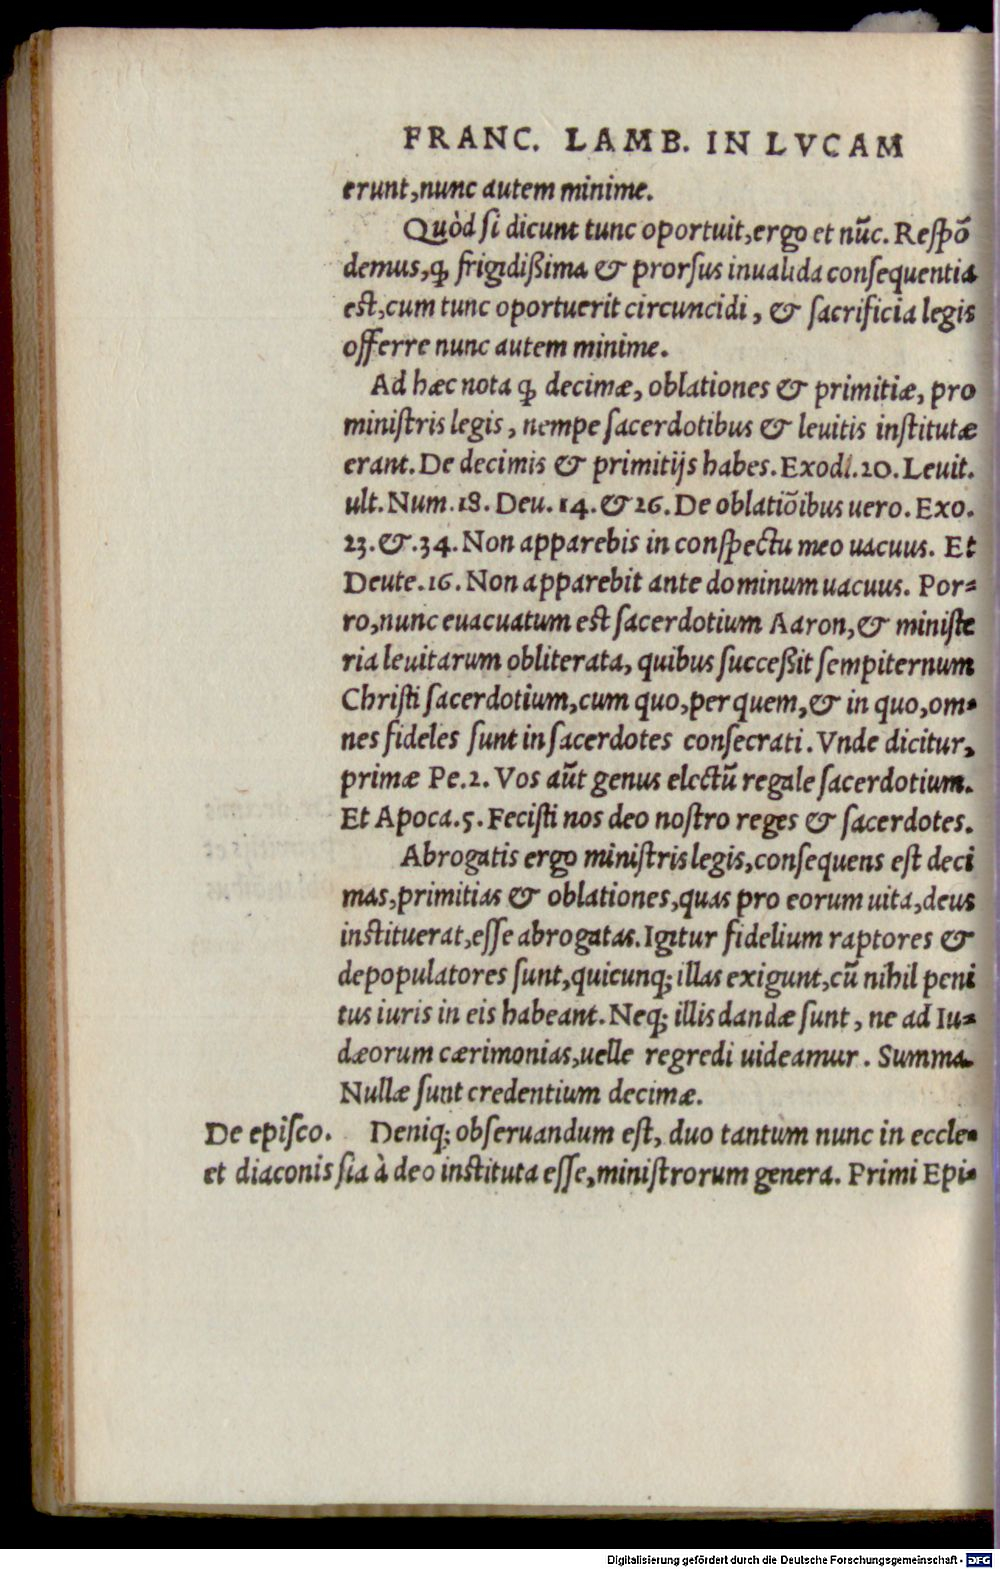 FRANC. LAMB. IN LVCAM
erunt,nunc autem minime.
Quòd si dicunt tunc oportuit,ergo et nūc. Respō
demus,ꝙ frigidißima & prorsus inualida consequentia
est,cum tunc oportuerit circuncidi, & sacrificia legis
offerre nunc autem minime.
Ad hæc nota ꝙ decimæ, oblationes & primitiæ, pro
ministris legis, nempe sacerdotibus & leuitis institutæ
erant. De decimis & primitijs habes. Exodi. 20. Leuit.
ult. Num. 18. Deu. 14. & 26. De oblatiōibus uero. Exo.
23. &. 34. Non apparebis in conspectu meo uacuus. Et
Deute. 16. Non apparebit ante dominum uacuus. Por=
ro,nunc euacuatum est sacerdotium Aaron,& ministe
ria leuitarum obliterata, quibus succeßit sempiternum
Christi sacerdotium,cum quo,per quem,& in quo,om=
nes fideles sunt in sacerdotes consecrati. Vnde dicitur,
primæ Pe. 2. Vos aūt genus electū regale sacerdotium.
Et Apoca. 5. Fecisti nos deo nostro reges & sacerdotes.
Abrogatis ergo ministris legis,consequens est deci
mas,primitias & oblationes,quas pro eorum uita,deus
instituerat,esse abrogatas. Igitur fidelium raptores &
depopulatores sunt,quicunq; illas exigunt,cū nihil peni
tus iuris in eis habeant. Neq; illis dandæ sunt, ne ad Iu=
dæorum cærimonias,uelle regredi uideamur. Summa.
Nullæ sunt credentium decimæ.
De episco. Deniq; obseruandum est, duo tantùm nunc in eccle=
et diaconis sia à deo instituta esse,ministrorum genera. Primi Epi=
Digitalisierung gefördert durch die Deutsche Forschungsgemeinschaft - DFG